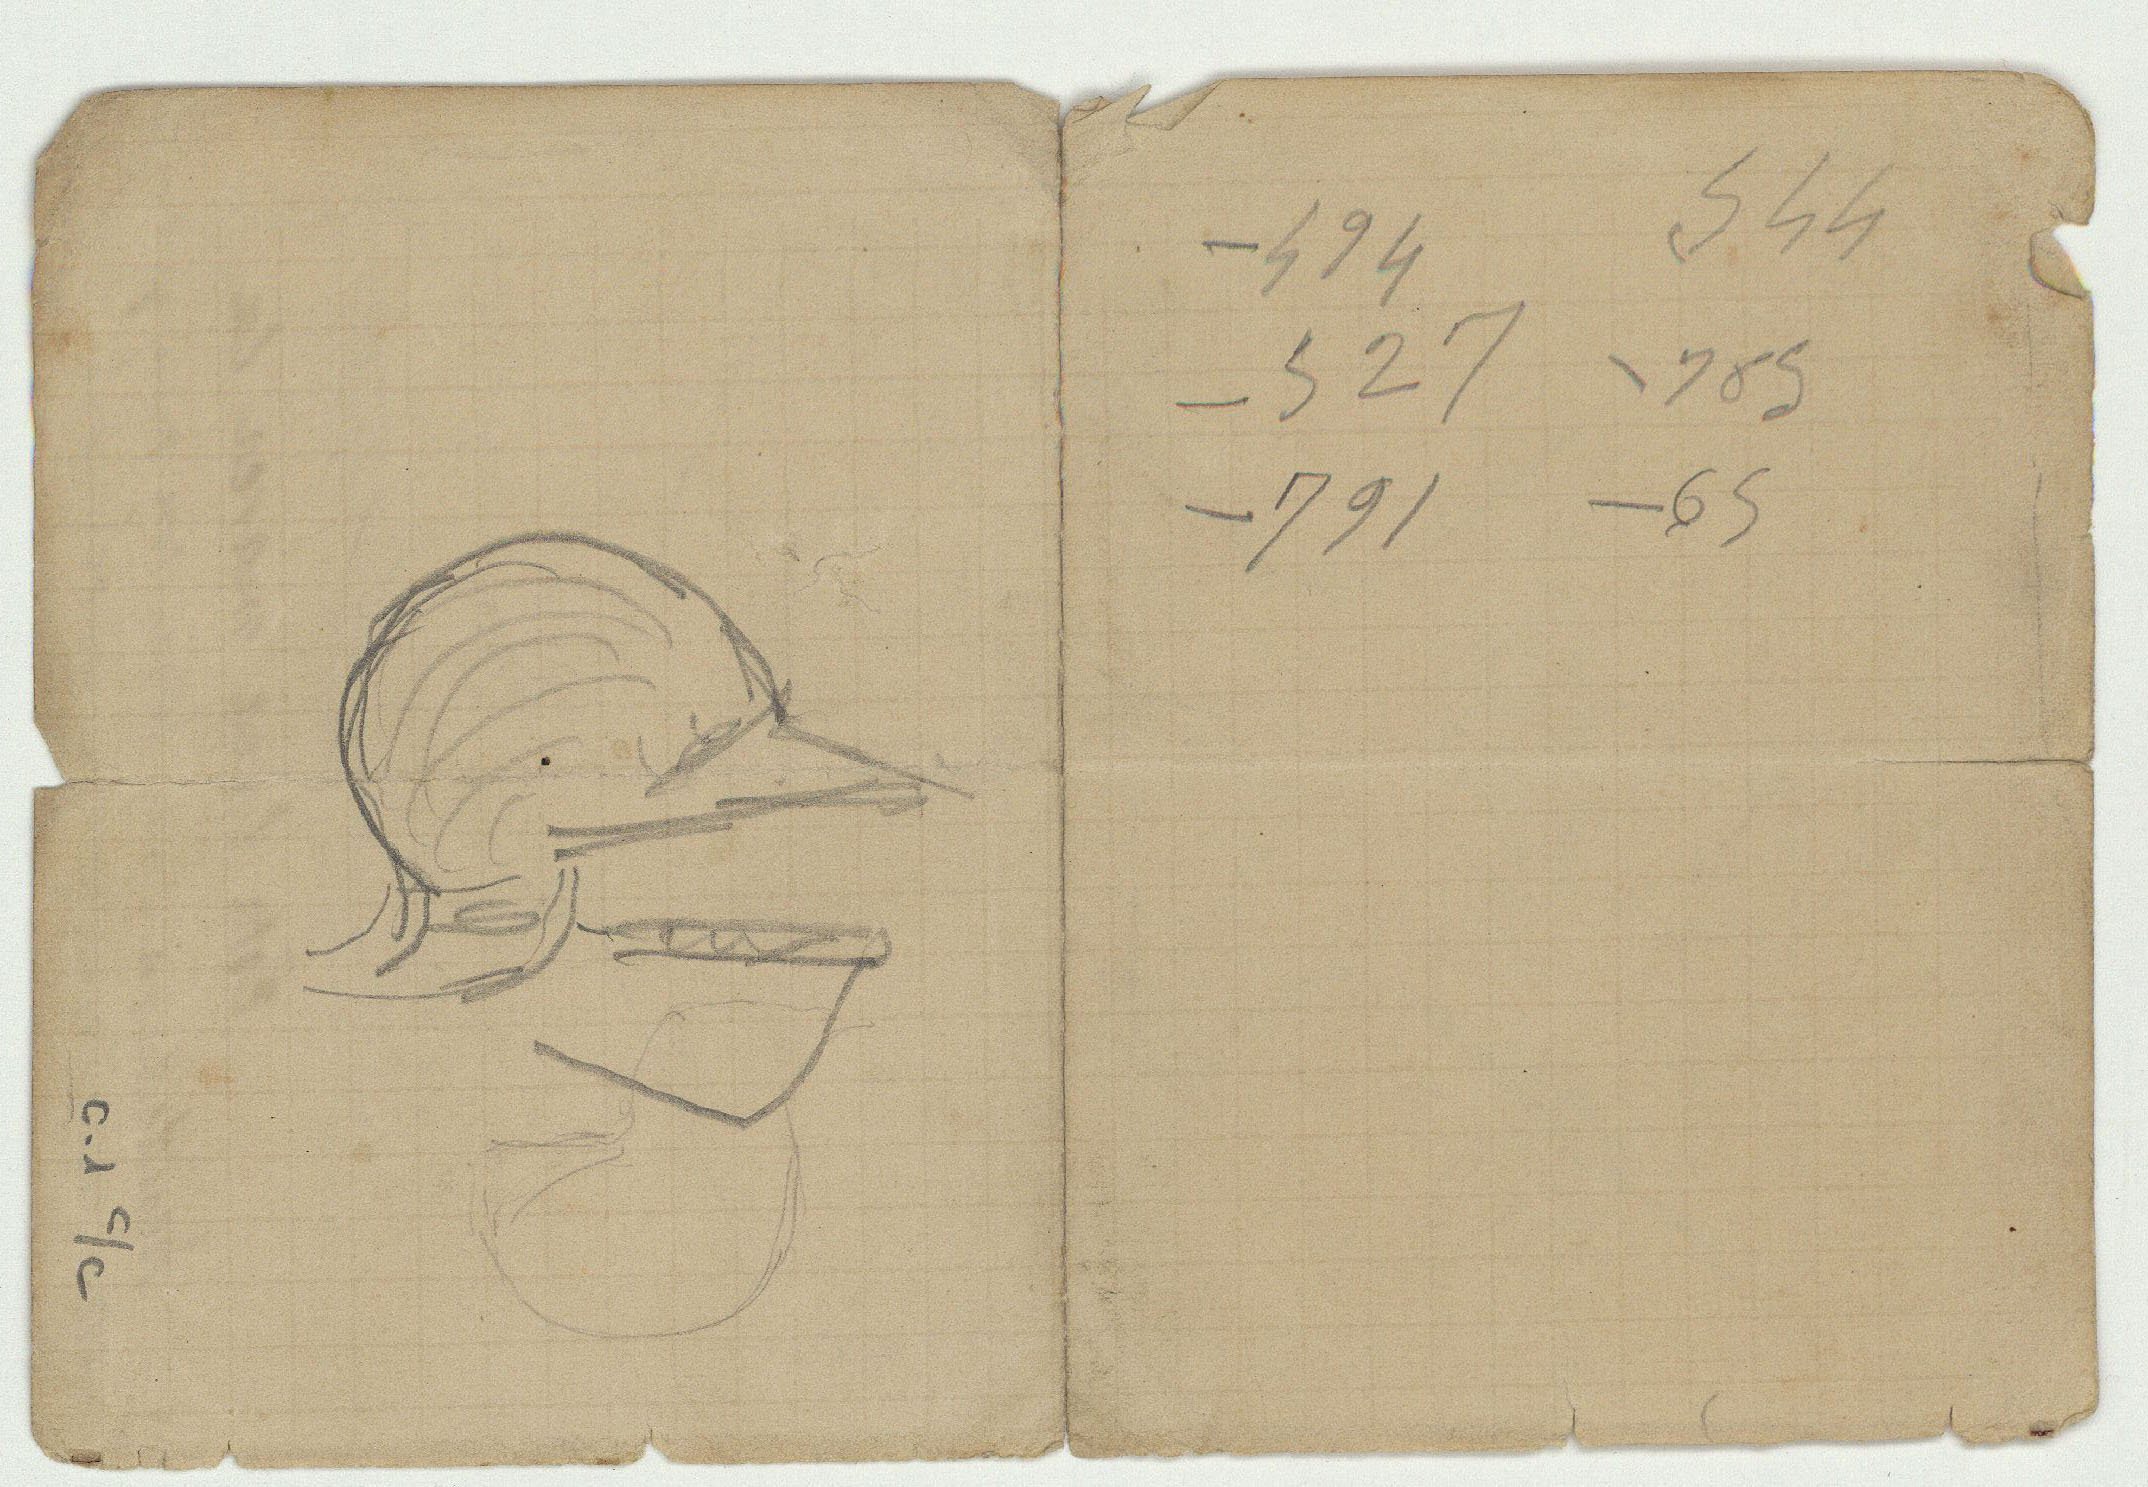 -494 544
-527 -785
-791 -65